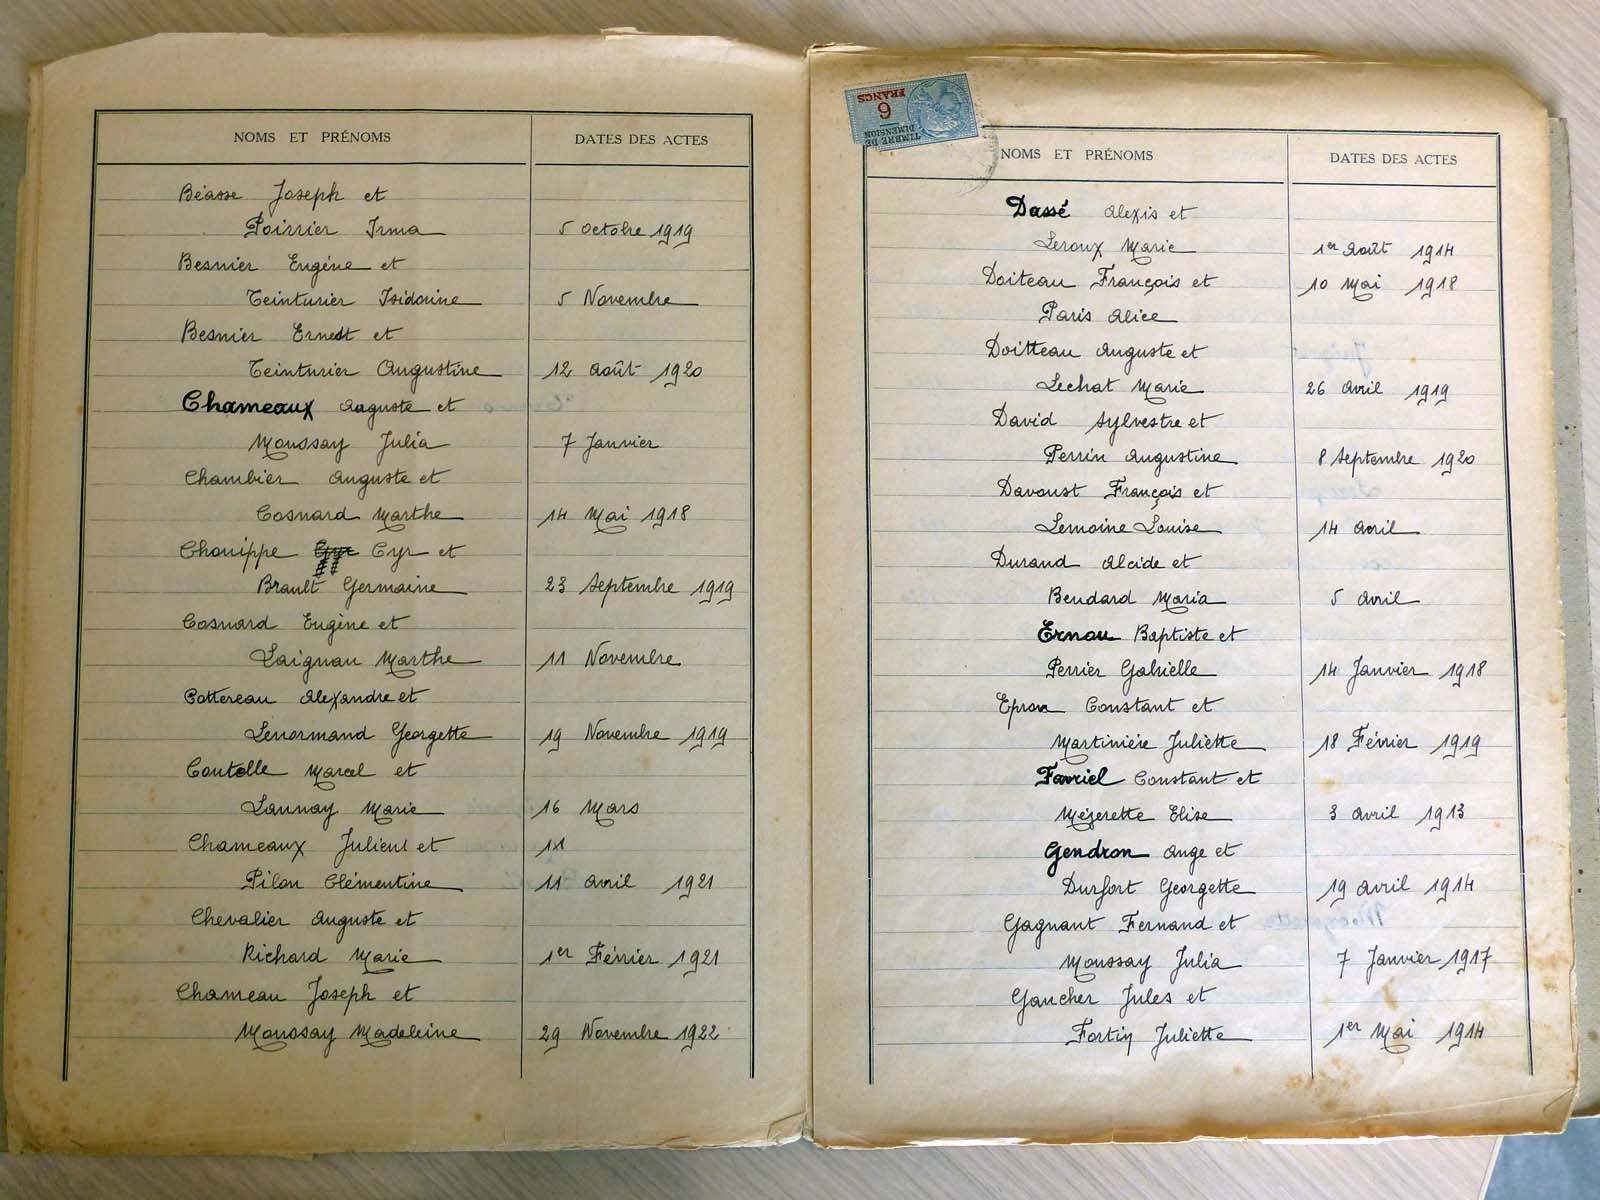 NOMS ET PRÉNOMS DATES DES ACTES
Béasse Joseph et
Poirrier Irma 5 Octobre 1919
Besnier Eugène et
Teinturier Isidorine 5 Novembre
Besnier Ernest et
Teinturier Augustine 12 Août 1920
Chameaux Auguste et
Moussay Julia 7 Janvier
Chambrier Auguste et
Cosnard Marthe 14 Mai 1918
Chouippe Cyr et
Brault Germaine 23 Septembre 1919
Cosnard Eugène et
Laignau Marthe 11 Novembre
Cottereau Alexandre et
Lenormand Georgette 19 Novembre 1919
Coutelle Marcel et
Launay Marie 16 Mars
Chameaux Julien et 11
Pilon Clémentine 11 Avril 1921
Chevalier Auguste et
Richard Marie 1er Février 1921
Chameau Joseph et
Moussay Madeleine 29 Novembre 1922
TIMBRE DE
DIMENSION
6
FRANCS
NOMS ET PRÉNOMS DATES DES ACTES
Dassé Alexis et
Leroux Marie 1er Août 1914
Doiteau François et 10 Mai 1918
Paris Alice
Doitteau Auguste et
Lechat Marie 26 Avril 1919
David Sylvestre et
Perrin Augustine 8 Septembre 1920
Davoust François et
Lemoine Louise 14 Avril
Durand Alcide et
Beudard Maria 5 Avril
Ernou Baptiste et
Perrier Gabrielle 14 Janvier 1918
Epron Constant et
Martinière Juliette 18 Février 1919
Favriel Constant et
Mézerette Elise 3 Avril 1913
Gendron Ange et
Durfort Georgette 19 Avril 1914
Gagnant Fernand et
Moussay Julia 7 Janvier 1917
Gaucher Jules et
Fortin Juliette 1er Mai 1914